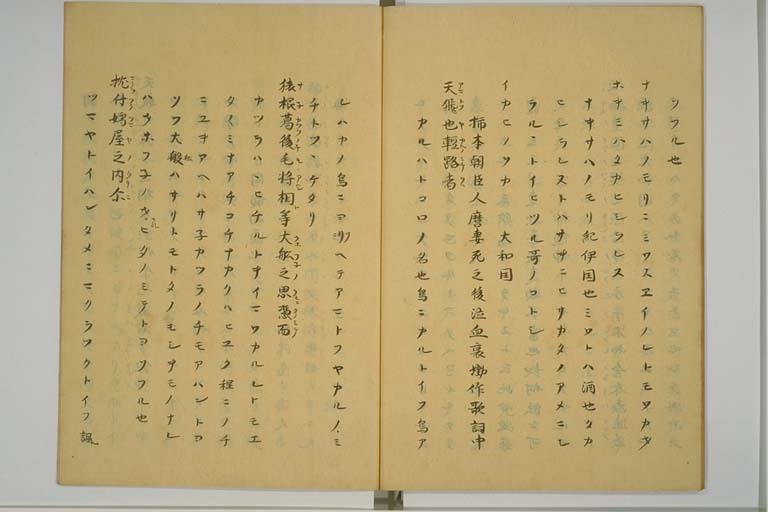 ツフル也
ナキサハノモリニミワスヱイノレトモワカタ
ホキミハタカヒシラレス
ナキサハノモリ紀伊国也ミワトハ酒也タカ
ヒシラレストハサキニヒサカタノアメニシ
ラルヽトイヒツル哥ノコトシ
イカヒノヲカ 大和国
柿本朝臣人麿妻死之後泣血哀慟作歌詞中
天飛也軽路者
カルハトコロノ名也鳥ニカルトイフ鳥ア
レハカノ鳥ニヨソヘテアマトフヤカルノミ
チトツヽケタリ
猿根葛後毛将相等大舩之思憑而
カツラハヽヒチルトキイニワカルレトモエ
タノミナアチコチナカクハヒユク程ニノチ
ニユキアヘハサネカツラノチモアハントヨ
ソフ大般ハサリトモトタノモシキモノナレ
ハオホフネノオモヒタノミテトヨソフル也
枕付嬬屋之内尓
ツマヤトイハンタメニマクラツクトイフ諷